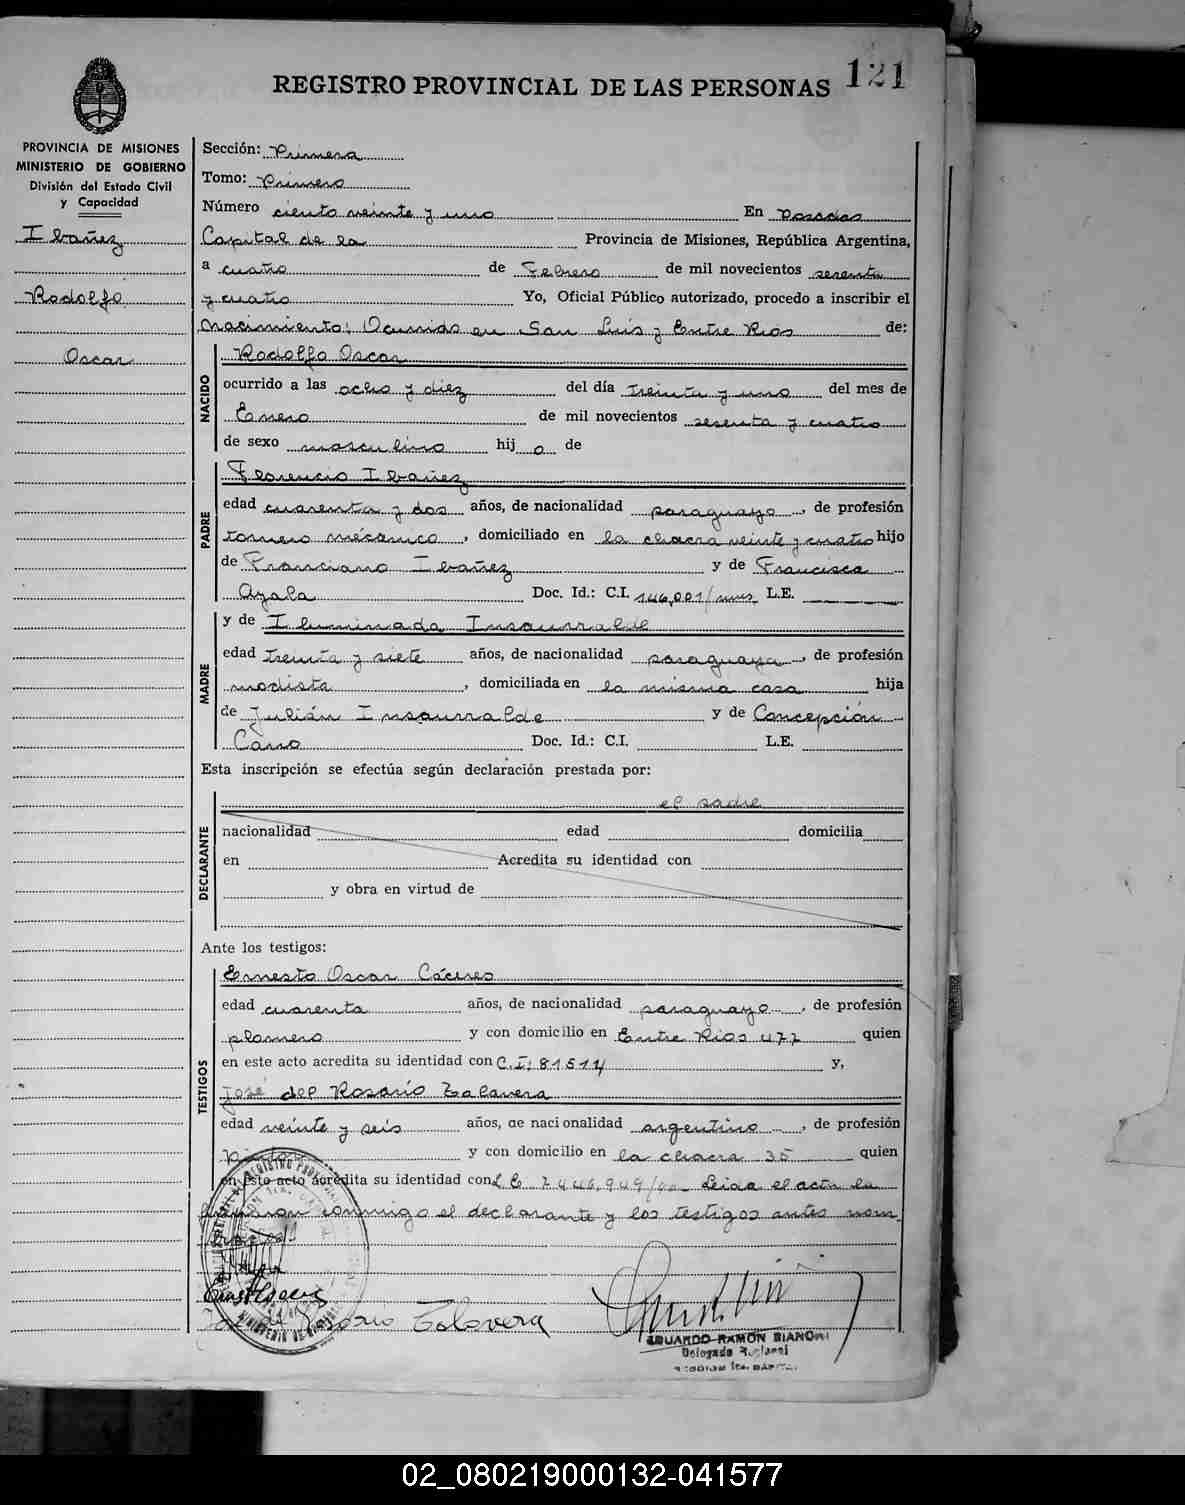 REGISTRO PROVINCIAL DE LAS PERSONAS 121
PROVINCIA DE MISIONES
MINISTERIO DE GOBIERNO
División del Estado Civil
y Capacidad
Ibañez
Rodolfo
Oscar
Sección: Primera
Tomo: Primero
Número ciento veinte y uno En Posadas
Capital de la Provincia de Misiones, República Argentina,
a cuatro de Febrero de mil novecientos sesenta
y cuatro Yo, Oficial Público autorizado, procedo a inscribir el
Nacimiento: Ocurrido en San Luis y Entre Rios de:
NACIDO
Rodolfo Oscar
ocurrido a las ocho y diez del día treinta y uno del mes de
Enero de mil novecientos sesenta y cuatro
de sexo masculino hij o de
PADRE
Florencio Ibañez
edad cuarenta y dos años, de nacionalidad paraguayo, de profesión
tornero mécanico, domiciliado en la chacra veinte y cuatro hijo
de Ibañez y de Francisca
Ayala Doc. Id.: C.I. 146,001/ L.E.
MADRE
y de Iluminada Insaurralde
edad treinta y siete años, de nacionalidad paraguaya, de profesión
modista, domiciliada en la misma casa hija
de Julián Insaurralde y de Concepción
Cano Doc. Id.: C.I. L.E.
Esta inscripción se efectúa según declaración prestada por:
el padre
DECLARANTE
nacionalidad edad domicilia
en Acredita su identidad con
y obra en virtud de
Ante los testigos:
TESTIGOS
Ernesto Oscar Cáceres
edad cuarenta años, de nacionalidad paraguayo, de profesión
plomero y con domicilio en Entre Rios 477 quien
en este acto acredita su identidad con C.I: 81514 y,
José del Rosario Talavera
edad veinte y seis años, de nacionalidad argentino, de profesión
y con domicilio en la chacra 35 quien
en este acto acredita su identidad con L E 7.446,949/ Leida el acta la
firmaron conmigo el declarante y los testigos antes nom-
brados
Rosario Talavera
EDUARDO RAMON BIANCHI
Delegado
02_080219000132-041577